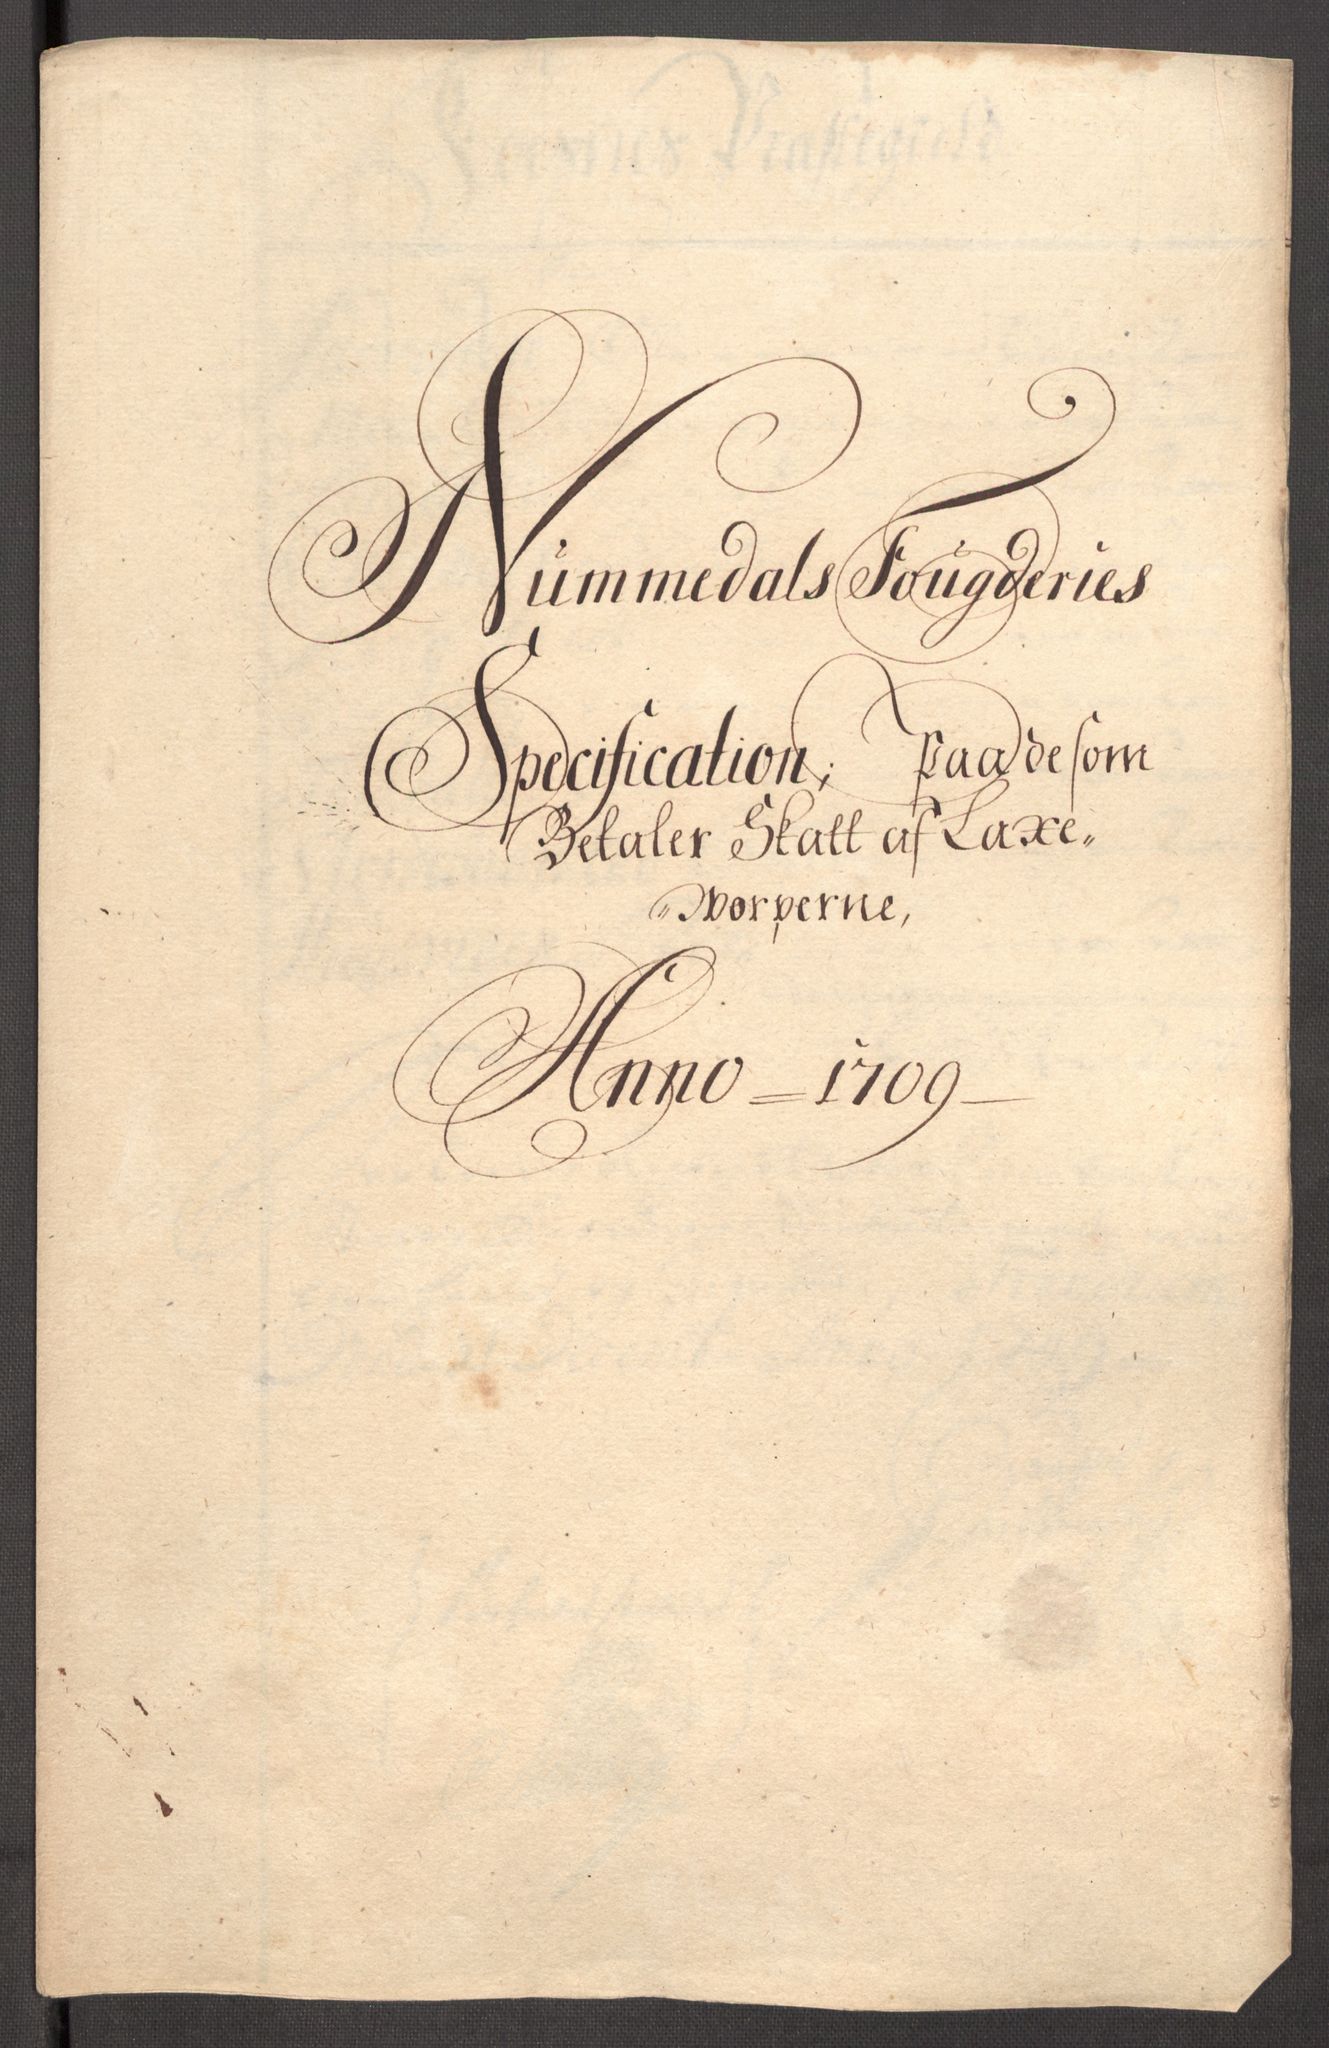 Nummedals Fougderies
Specification, Paa de som
Betaler Skatt af Laxe„
„worperne,
Anno = 1709 –